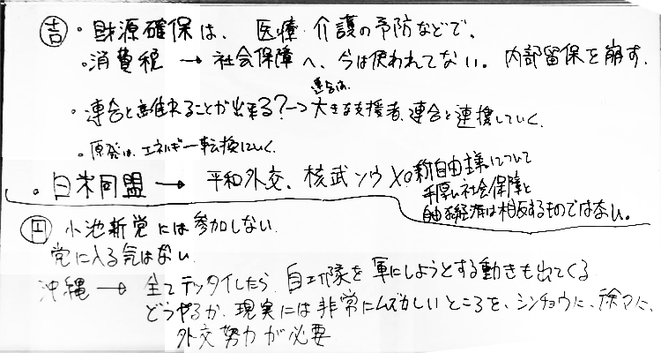 吉 ・財源確保は、医療・介護の予防などで。
・消費税 → 社会保障へ、今は使われてない。内部留保を崩す。
・連合と離れることが出来る?→ 連合は、大きな支援者、連合と連携していく。
・原発は、エネルギー転換にいく。
・日米同盟 → 平和外交、核武ソウ×。
新自由主義について
手厚い社会保障と
自由な経済は相反するものではない。
円 小池新党には参加しない。
党に入る気はない
沖縄 → 全てテッタイしたら、自エイ隊を軍にしようとする動きも出てくる
どうやるか、現実には非常にムズかしいところを、シンチョウに、徐々に、
外交努力が必要